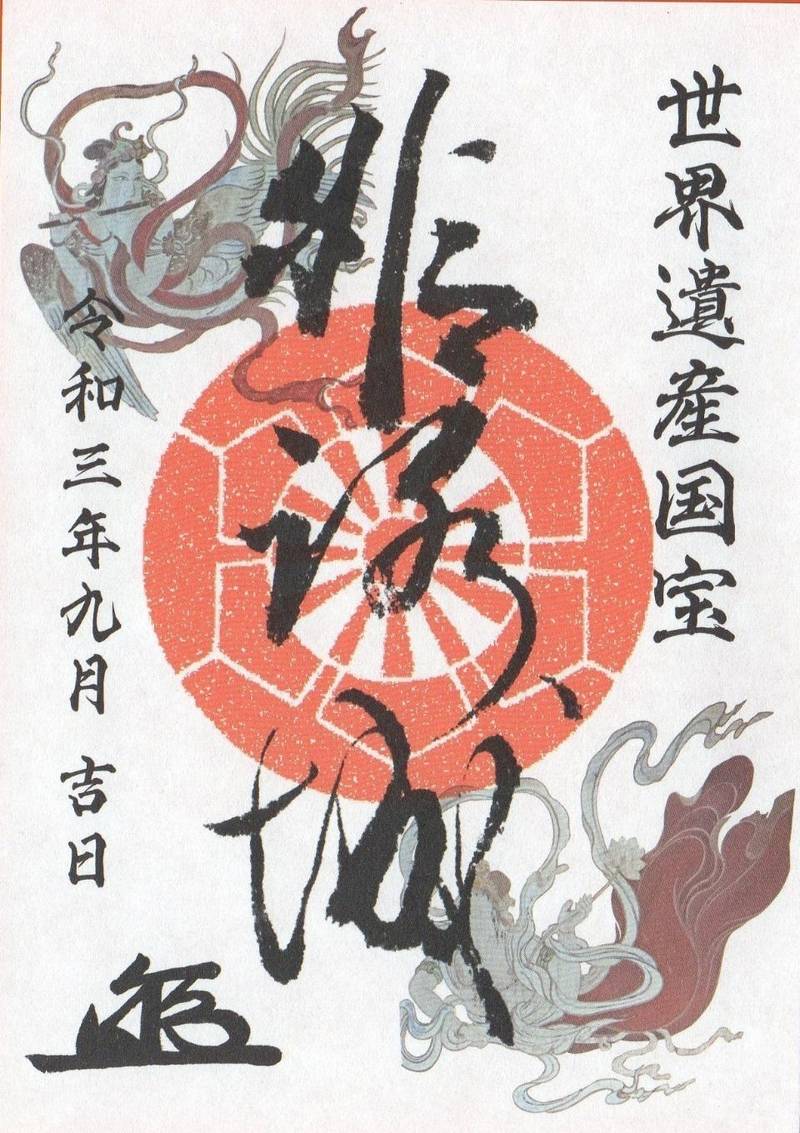 世界遺産国宝
姫路城
令和三年九月 吉日